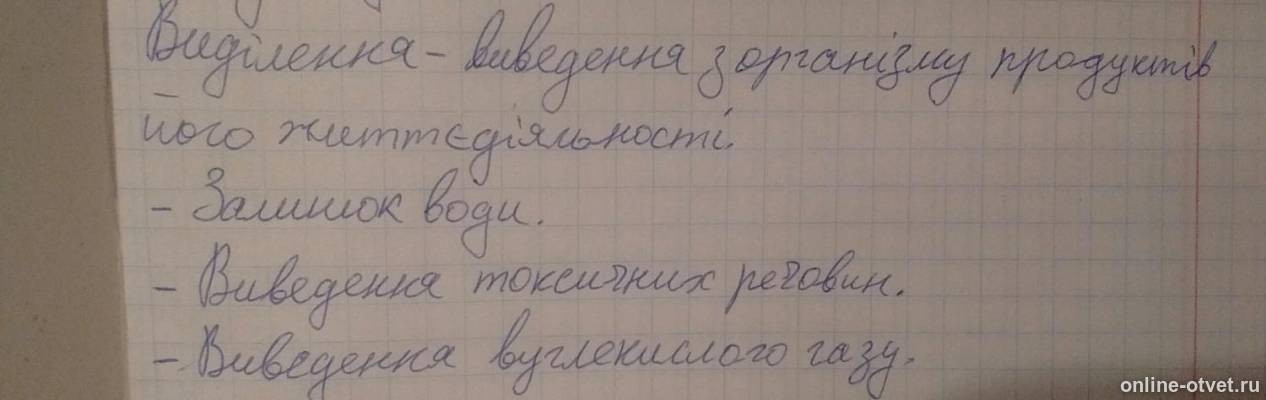 Виділення - виведення з організму продуктів
його життєдіяльності.
- Залишок води.
- Виведення токсичних речовин.
- Виведення вуглекислого газу.
online-otvet.ru